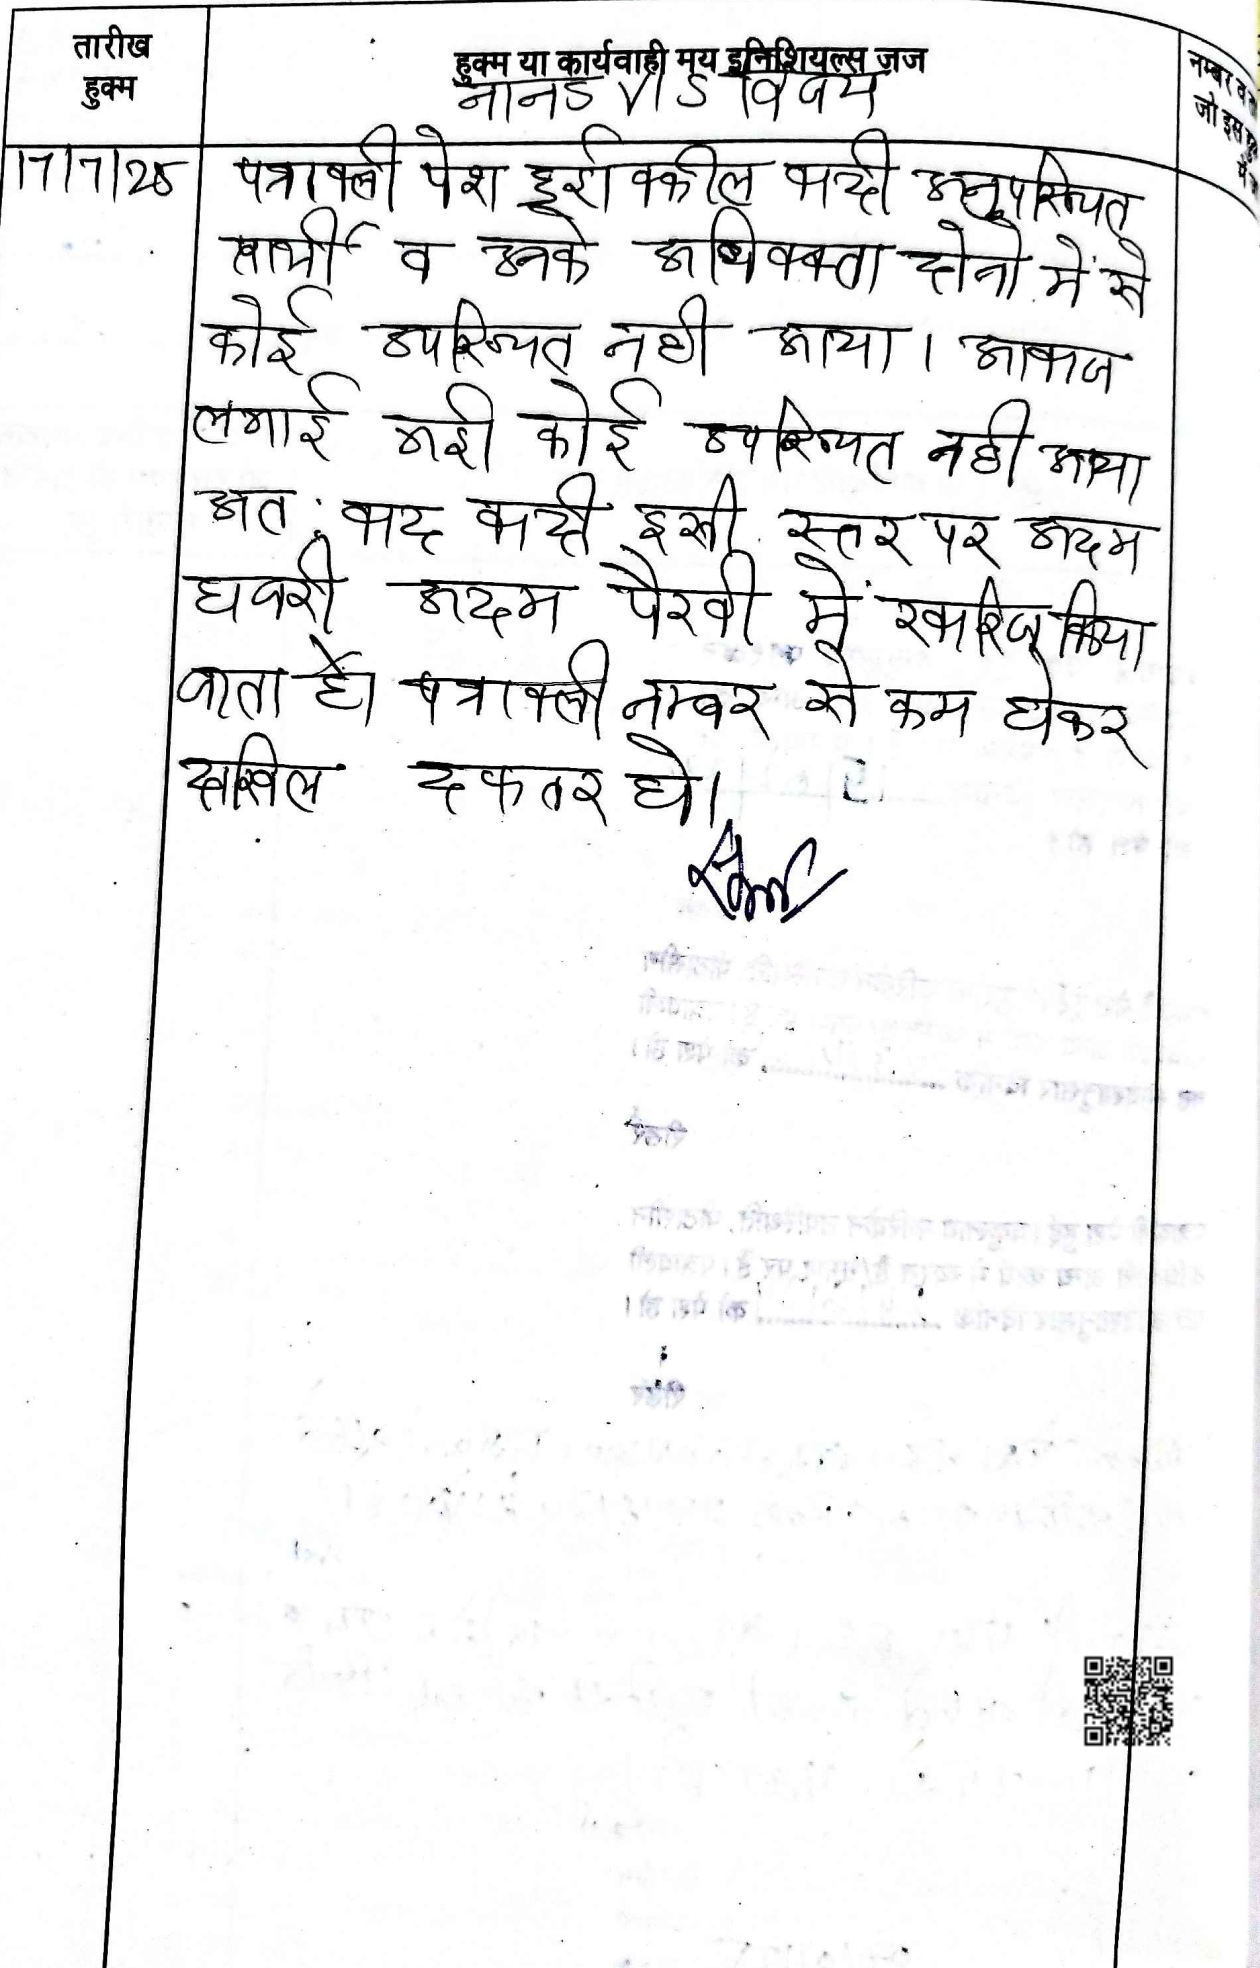 तारीख
हुक्म
हुक्म या कार्यवाही मय इनिशियल्स जज
नम्बर व
जो इस
में
नानड V/S विजय
17/7/25
पत्रावली पेश हुई वकील वादी अनुपस्थित
प्रार्थी व उनके अधिवक्ता दोनो में से
कोई उपस्थित नही आया। आवाज
लगाई गई कोई उपस्थित नही आया
अत: वाद वादी इसी स्तर पर अदम
हाजरी अदम पैरवी में खारिज किया
जाता है। पत्रावली नम्बर से कम होकर
दाखिल दफतर हो।